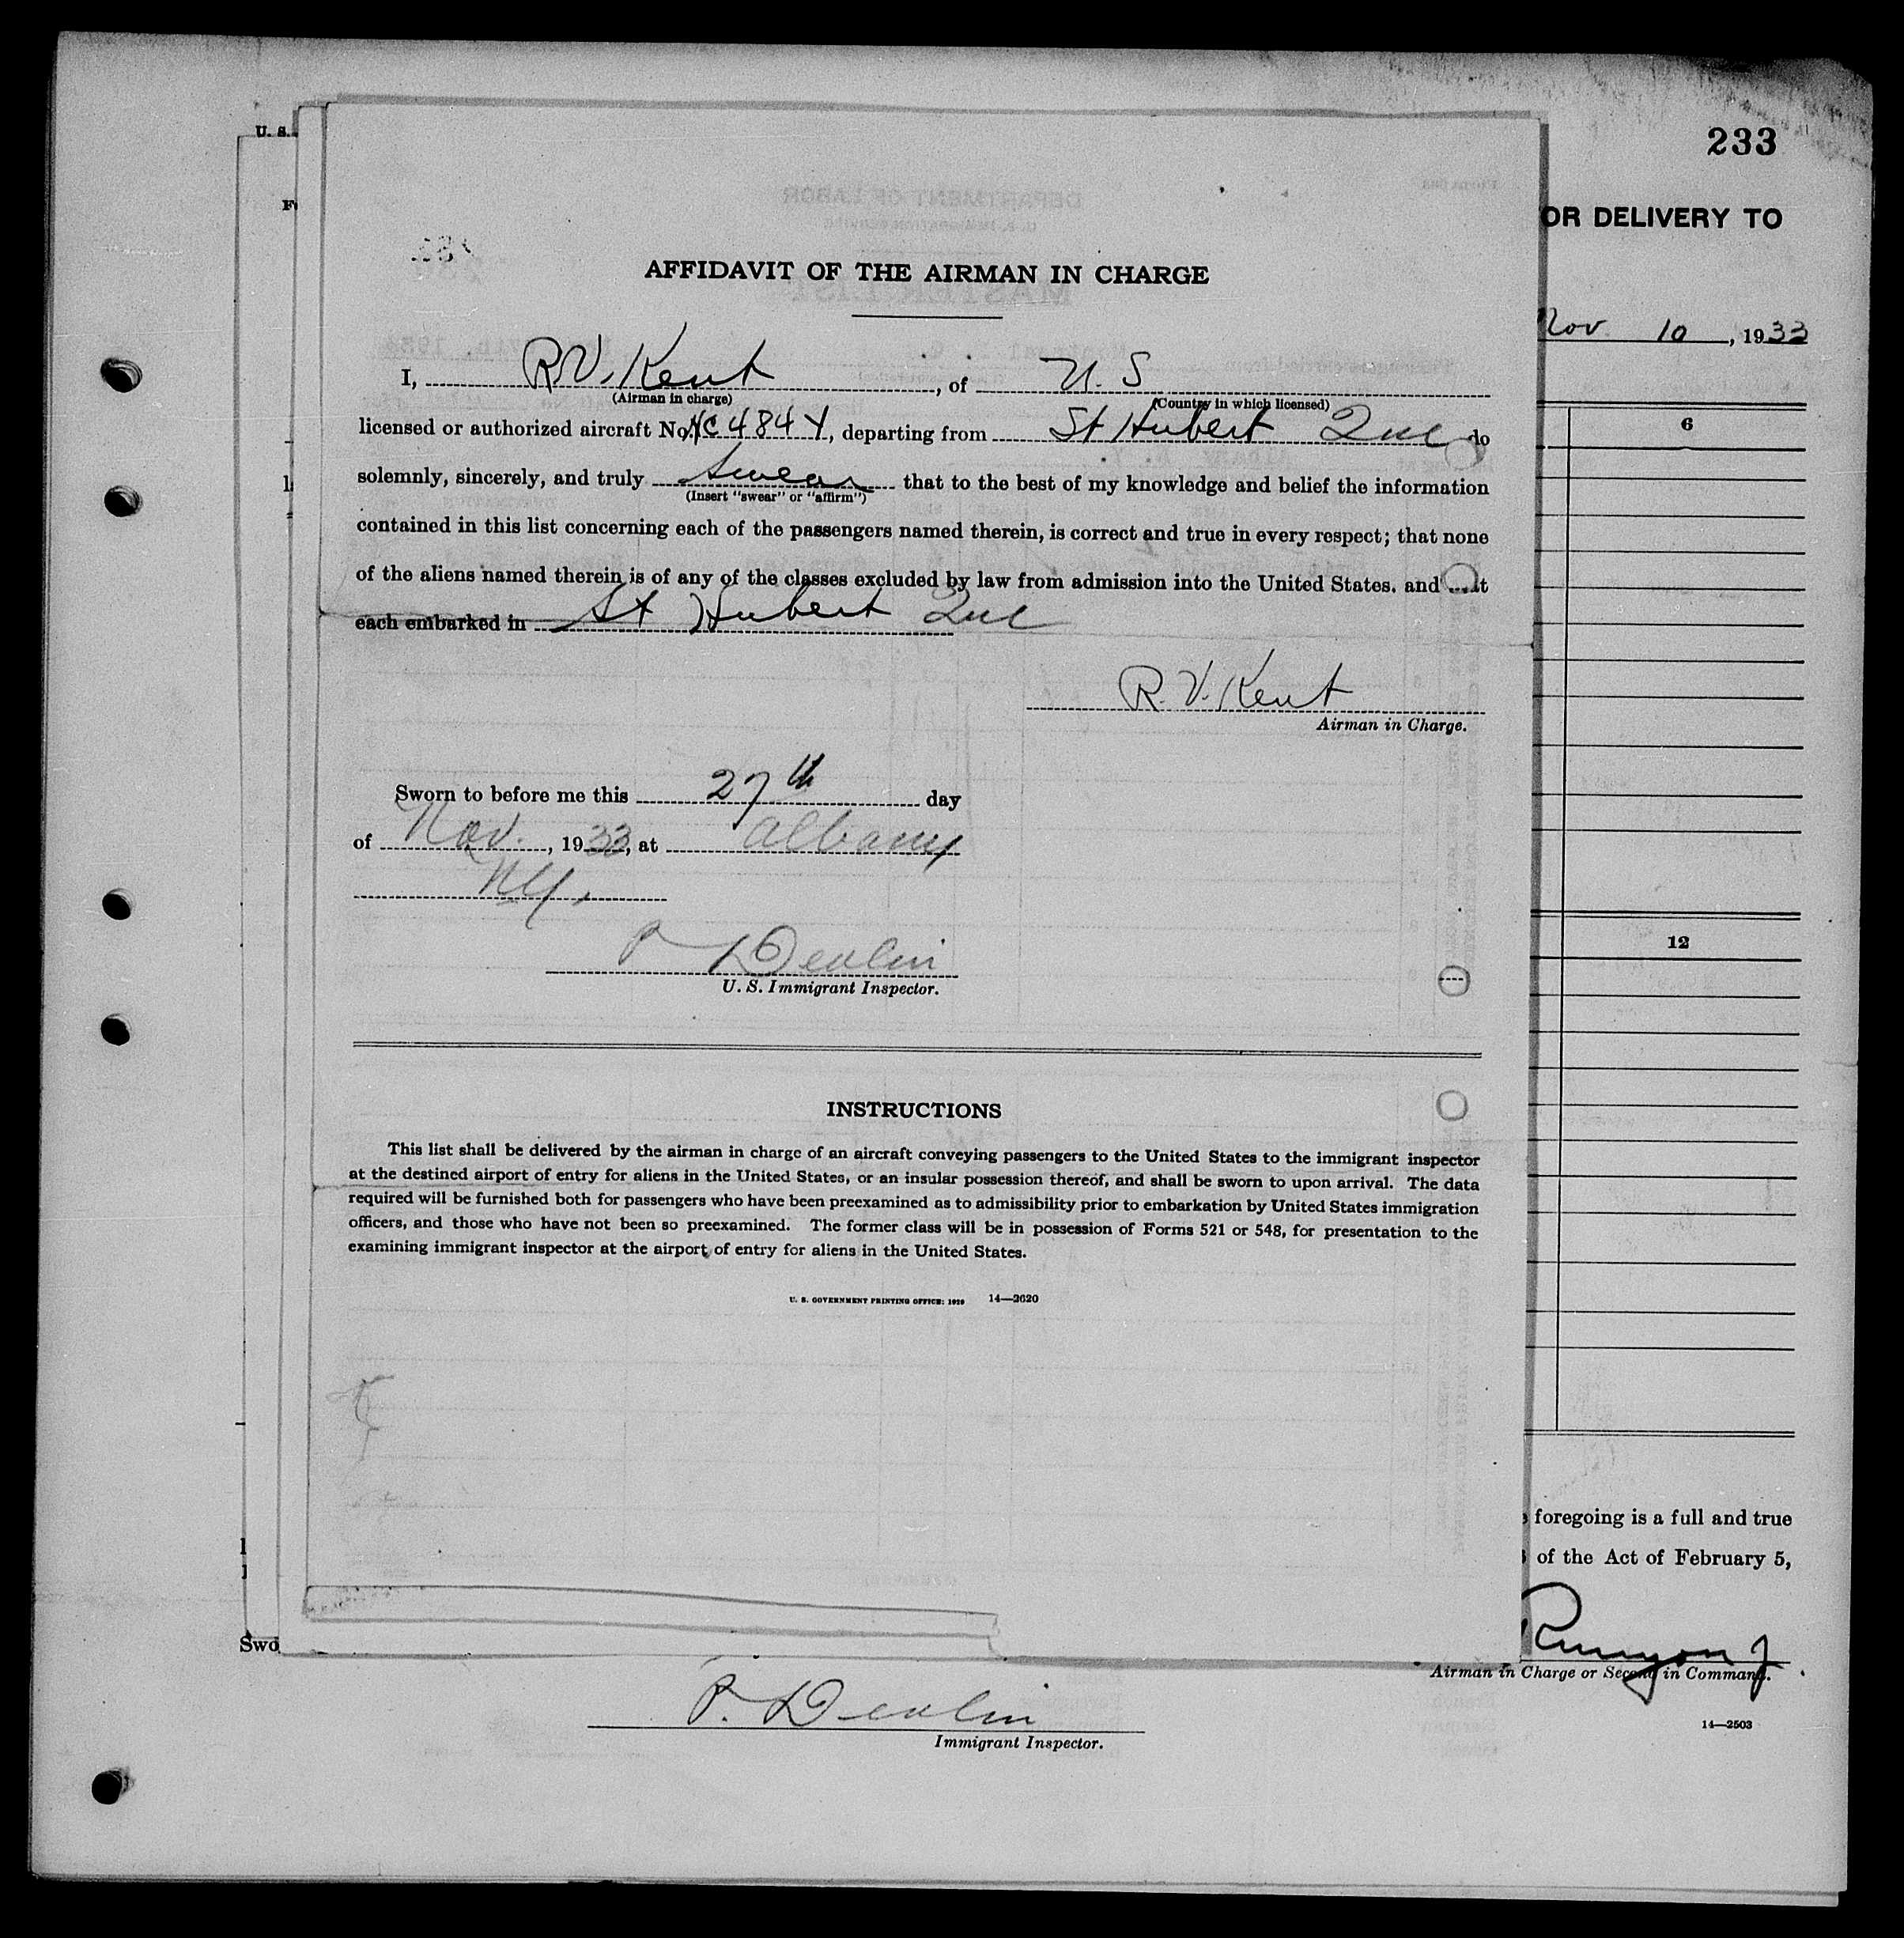 U. S.
233
OR DELIVERY TO
AFFIDAVIT OF THE AIRMAN IN CHARGE
Nov. 10, 1933
I, R.V. Kent, of U. S
(Airman in charge) (Country in which licensed)
licensed or authorized aircraft No. NC484Y, departing from St Hubert Que do
6
solemnly, sincerely, and truly swear that to the best of my knowledge and belief the information
(Insert "swear" or "affirm")
contained in this list concerning each of the passengers named therein, is correct and true in every respect; that none
of the aliens named therein is of any of the classes excluded by law from admission into the United States. and
each embarked in St Hubert Que
R. V. Kent
Airman in Charge.
Sworn to before me this 27th day
of Nov., 1933, at Albany
NY.
12
P Devlin
U. S. Immigrant Inspector.
INSTRUCTIONS
This list shall be delivered by the airman in charge of an aircraft conveying passengers to the United States to the immigrant inspector
at the destined airport of entry for aliens in the United States, or an insular possession thereof, and shall be sworn to upon arrival. The data
required will be furnished both for passengers who have been preexamined as to admissibility prior to embarkation by United States immigration
officers, and those who have not been so preexamined. The former class will be in possession of Forms 521 or 548, for presentation to the
examining immigrant inspector at the airport of entry for aliens in the United States.
U. S. GOVERNMENT PRINTING OFFICE: 1929 14—2620
foregoing is a full and true
of the Act of February 5,
Swo
Runyon J
Airman in Charge or Second in Command.
P. Devlin
14—2503
Immigrant Inspector.